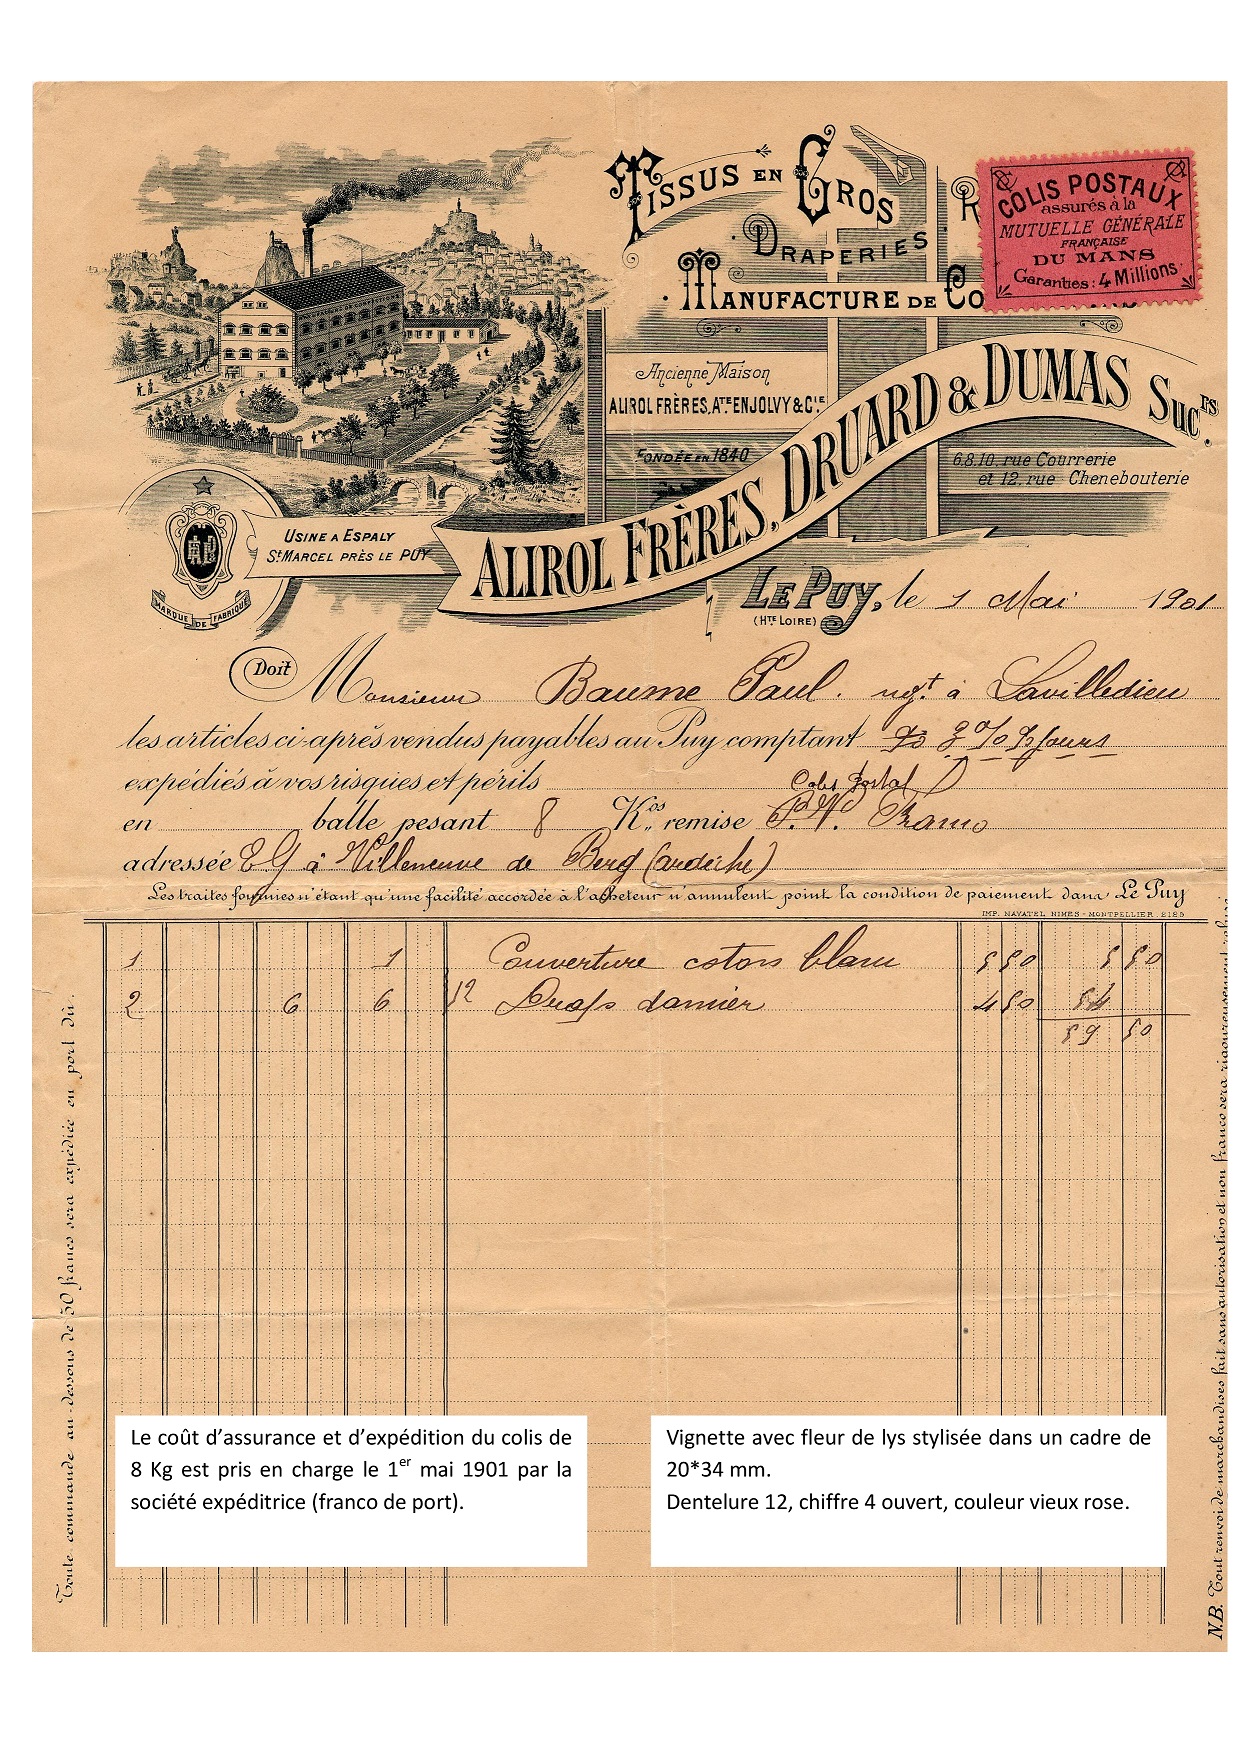 TISSUS EN GROS
DRAPERIES
R
MANUFACTURE DE CO
COLIS POSTAUX
assurés à la
MUTUELLE GÉNÉRALE
FRANÇAISE
DU MANS
Garanties: 4 Millions
Ancienne Maison
ALIROL FRÈRES, ATE ENJOLVY & CIE
FONDÉE EN 1840
ALIROL FRÈRES, DRUARD & DUMAS SUCRS.
6.8.10. rue Courrerie
et 12. rue Chenebouterie
USINE A ESPALY
ST MARCEL PRÈS LE PUY
MARQUE DE FABRIQUE
LE PUY, le 1 Mai 1901
(HTE LOIRE)
Doit Monsieur Baume Paul. ngt à Lavilledieu
les articles ci-après vendus payables au Puy comptant 3% jours
expédiés à vos risques et périls Colis Postal
en balle pesant 8 Kos remise P.V. Franco
adressée EG à Villeneuve de Berg (ardèche)
Les traites fournies n'étant qu'une facilité accordée à l'acheteur n'annulent point la condition de paiement dans Le Puy
IMP. NAVATEL NIMES-MONTPELLIER. 2185
1 1 Couverture coton blanc 5 50 5 50
2 6 6 12 Draps damier 4 50 54
59 50
Toute commande au-dessous de 50 francs sera expédiée en port dû.
N.B. Tout renvoi de marchandises fait sans autorisation et non franco sera rigoureusement refusé
Le coût d'assurance et d'expédition du colis de
8 Kg est pris en charge le 1er mai 1901 par la
société expéditrice (franco de port).
Vignette avec fleur de lys stylisée dans un cadre de
20*34 mm.
Dentelure 12, chiffre 4 ouvert, couleur vieux rose.